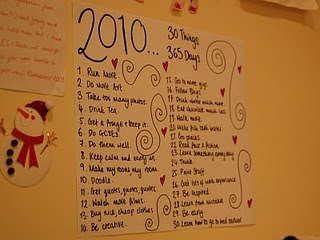 2010...
30 Things
365 Days
1. Run More.
2. Do More Art.
3. Take too many photos.
4. Drink Tea.
5. Get a fringe & keep it.
6. Do GCSEs
7. Do them well.
8. Keep calm and carry on.
9. Make my room my room
10. Doodle.
11. Get quotes, quotes, quotes.
12. Watch more films.
13. Buy nice, cheap clothes.
14. Be creative.
15. Go to more gigs.
16. Follow Blogs
17. Drink water, much more
18. Eat chocolate, much less.
19. Walk more
20. Write
21. Love places
22. Read for a fiction.
23. Learn something every day.
24. Think
25. Paint Stuff
26. Get lots of work experience
27. Be Inspired
28. Learn from mistakes
29. Be curly
30. Learn how to go to bed earlier!